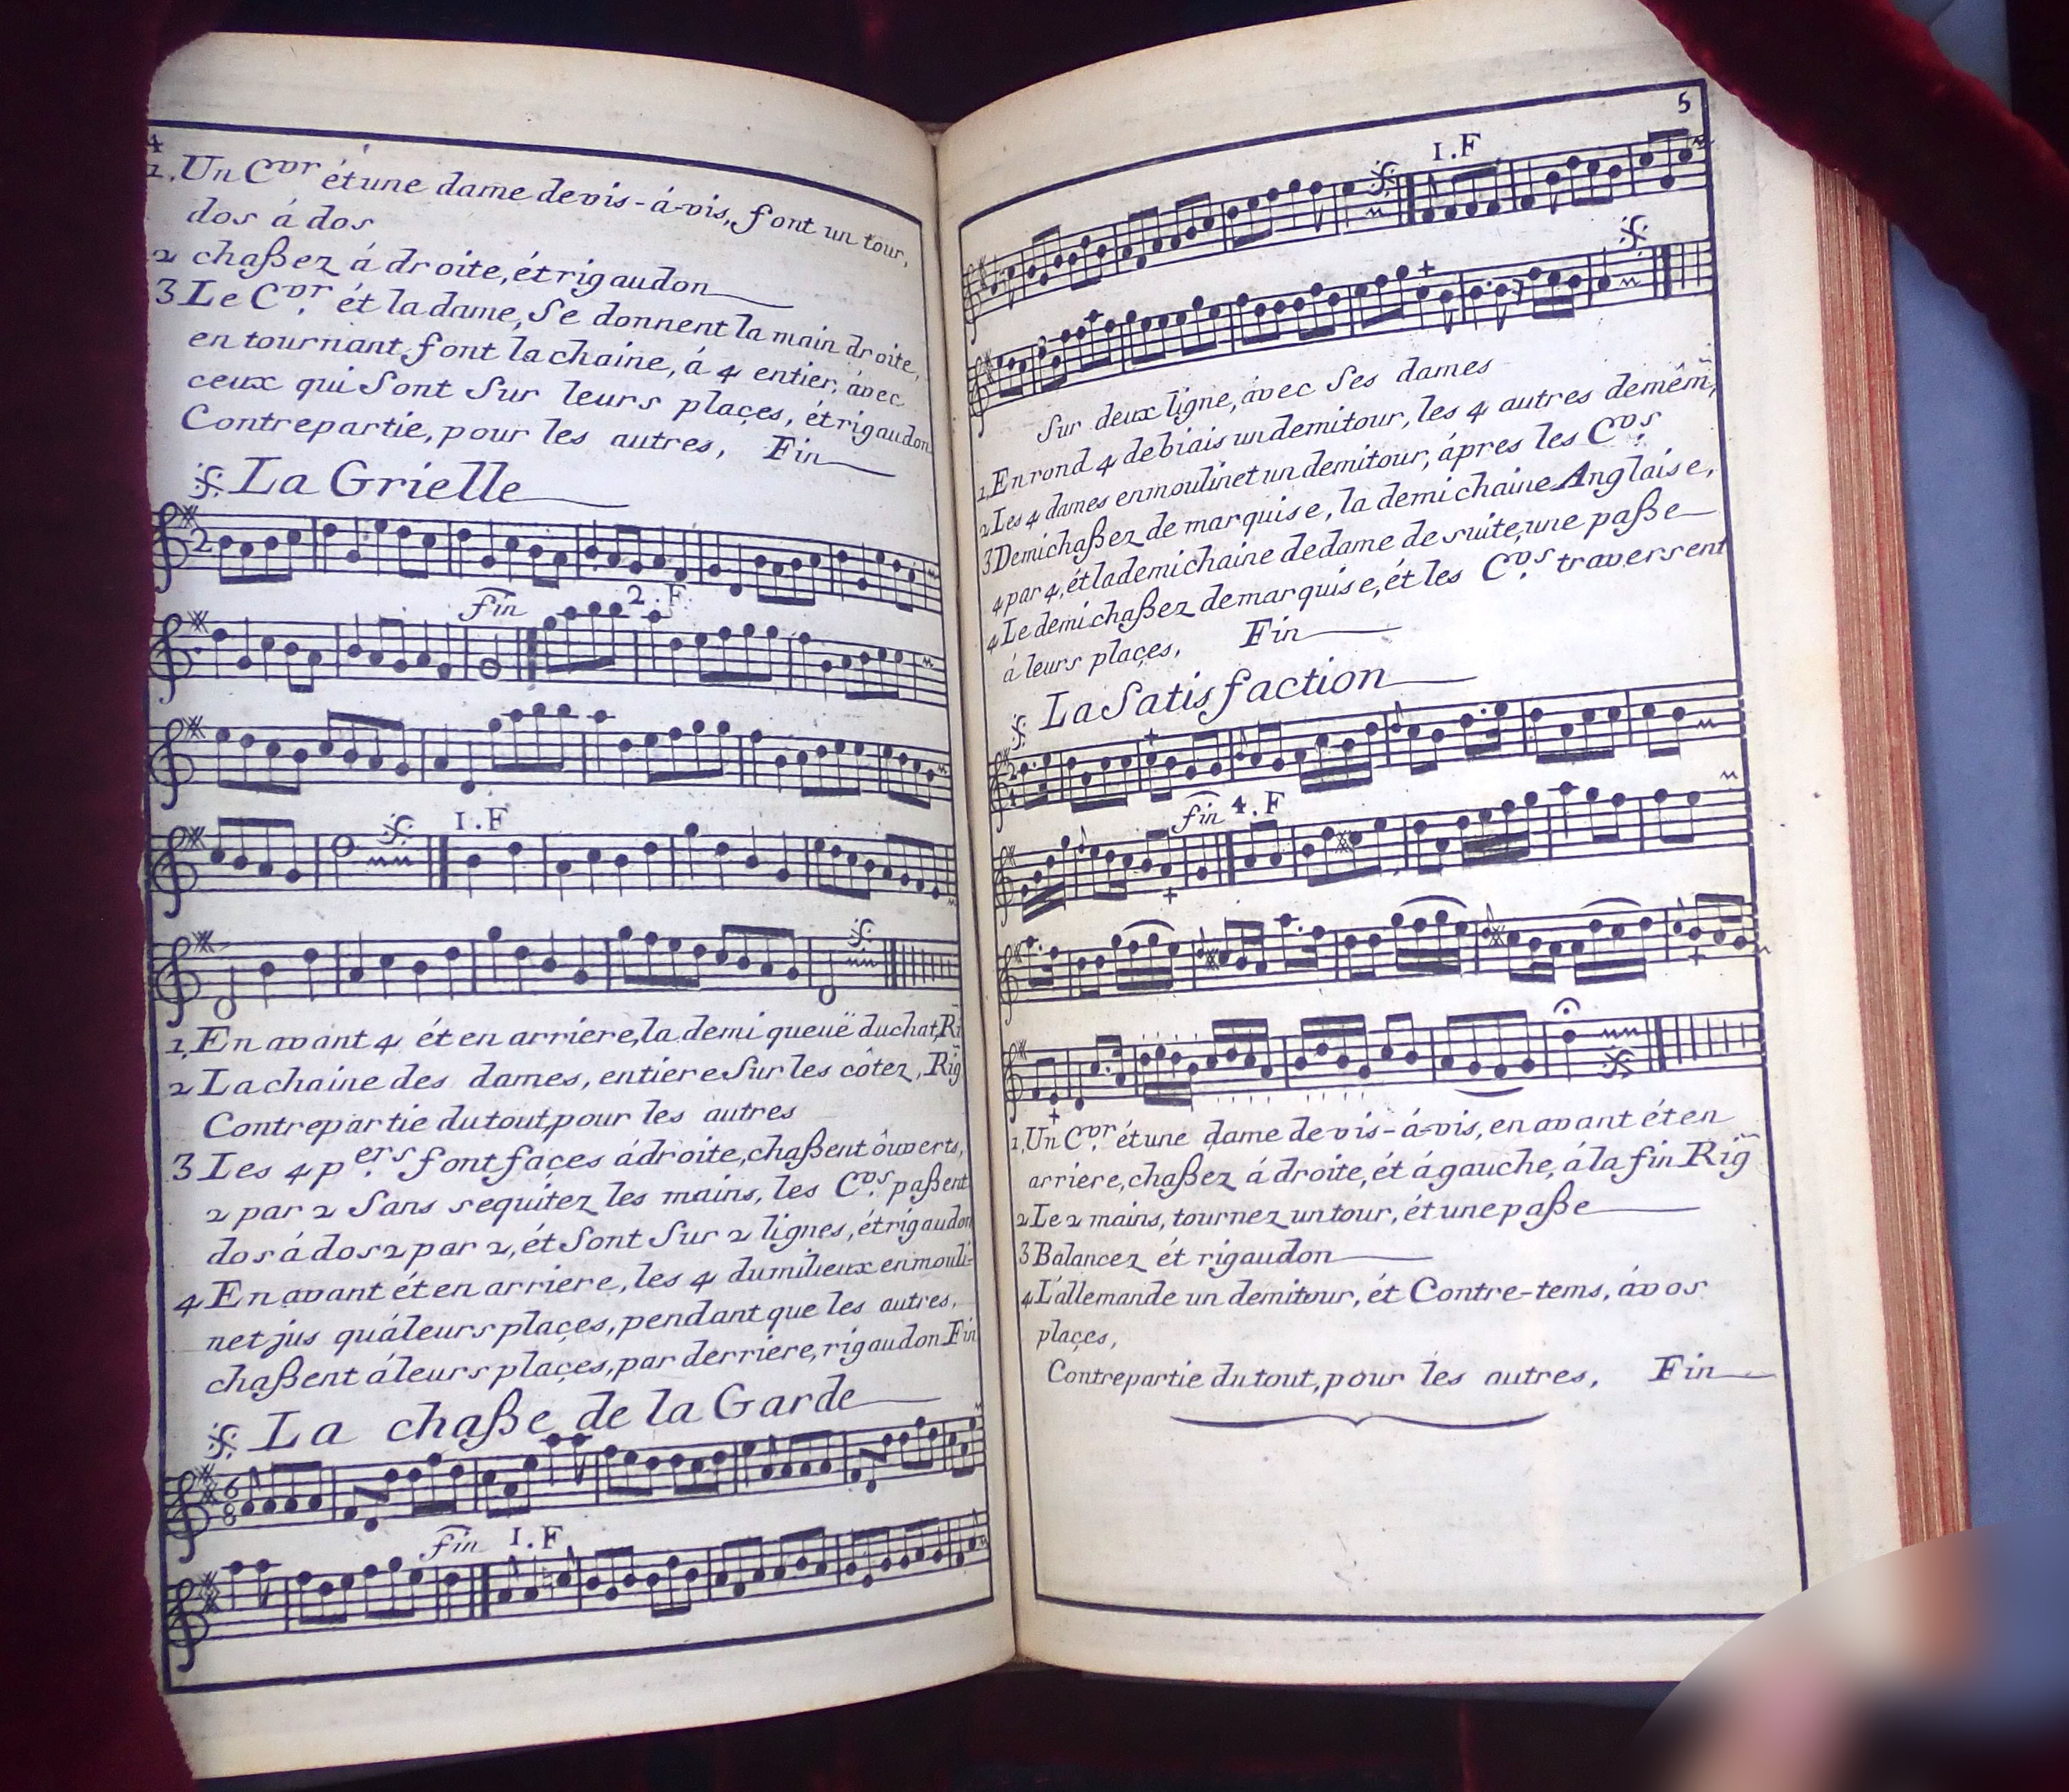 4
1. Un C.vr ét une dame de vis-á-vis, font un tour,
dos á dos
2 chaßez á droite, ét rigaudon
3 Le C.vr ét la dame, Se donnent la main droite,
en tournant font la chaine, á 4 entier, ávec
ceux qui Sont Sur leurs plaçes, ét rigaudon
Contrepartie, pour les autres, Fin
La Grielle
2
Fin 2. F.
1. F
1, En avant 4 ét en arriere, la demi queuë du chat, Ri
2 La chaine des dames, entiere Sur les côtez, Rig
Contrepartie du tout, pour les autres
3 Les 4 p.ers font façes á droite, chaßent ôuverts,
2 par 2 Sans se quitez les mains, les C.vs paßent
dos á dos 2 par 2, ét Sont Sur 2 lignes, ét rigaudon
4 En avant ét en arriere, les 4 du milieux en mouli-
net jus qu'á leurs plaçes, pendant que les autres,
chaßent á leurs plaçes, par derriere, rigaudon Fin
La chaße de la Garde
6
8
Fin 1. F
5
1. F
Sur deux ligne, ávec Ses dames
1, En rond 4 de biais un demi tour, les 4 autres de mêm,
2 Les 4 dames en moulinet un demi tour, ápres les C.vs
3 Demi chaßez de marquise, la demi chaine Anglaise,
4 par 4, ét la demi chaine de dame de suite, une paße
4 Le demi chaßez de marquise, ét les C.vs traversent
á leurs plaçes, Fin
La Satisfaction
2
4
fin 4. F
1, Un C.vr ét une dame de vis-á-vis, en avant ét en
arriere, chaßez á droite, ét á gauche, á la fin Rig
2 Le 2 mains, tournez un tour, ét une paße
3 Balancez ét rigaudon
4 L'allemande un demi tour, ét Contre-tems, á vos
plaçes,
Contrepartie du tout, pour les autres, Fin